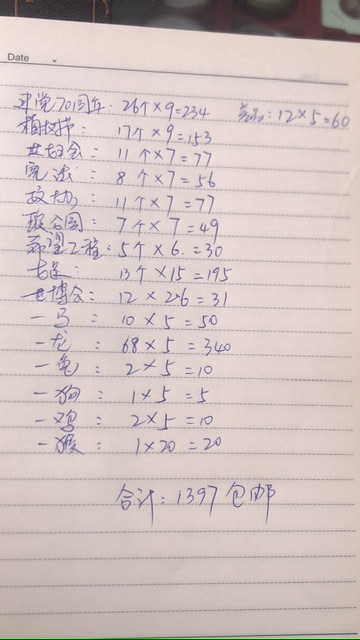 Date
建党70周年: 26个×9=234 差品: 12×5=60
植树节: 17个×9=153
世妇会: 11个×7=77
宪法: 8个×7=56
政协: 11个×7=77
联合国: 7个×7=49
希望工程: 5个×6.=30
13个×15=195
世博会: 12×2.6=31
一马: 10×5=50
一龙: 68×5=340
一兔: 2×5=10
一狗: 1×5=5
一鸡: 2×5=10
一猴: 1×20=20
合计: 1397包邮